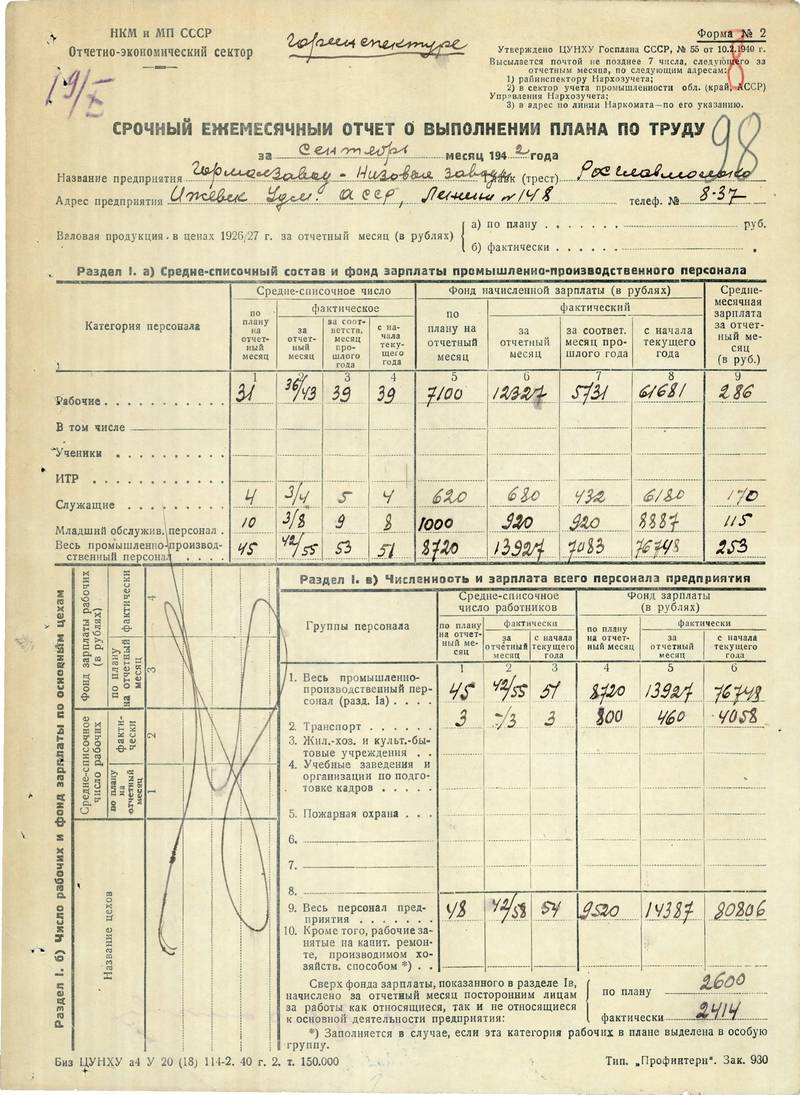 НКМ и МП СССР
Отчетно-экономический сектор
Форма № 2
Утверждено ЦУНХУ Госплана СССР, № 55 от 10.2.1940 г.
Высылается почтой не позднее 7 числа, следующего за
отчетным месяца, по следующим адресам:
1) райинспектору Нархозучета;
2) в сектор учета промышленности обл. (край, АССР)
Управления Нархозучета;
3) в адрес по линии Наркомата—по его указанию.
98
СРОЧНЫЙ ЕЖЕМЕСЯЧНЫЙ ОТЧЕТ О ВЫПОЛНЕНИИ ПЛАНА ПО ТРУДУ
за сентябрь месяц 1942 года
Название предприятия Гормолзавод - Низовые заводы (трест) Росглавмолоко
Адрес предприятия Ижевск Удм. АССР, Ленина № 148 телеф. № 8-37
Валовая продукция в ценах 1926/27 г. за отчетный месяц (в рублях)
а) по плану руб.
б) фактически
Раздел I. а) Средне-списочный состав и фонд зарплаты промышленно-производственного персонала
Категория персонала
Средне-списочное число
Фонд начисленной зарплаты (в рублях)
Средне-месячная зарплата за отчет-ный ме-сяц (в руб.)
по плану на отчет-ный месяц
фактическое
за отчет-ный месяц
за соот-ветств. месяц про-шлого года
с на-чала теку-щего года
по плану на отчетный месяц
фактический
за отчетный месяц
за соответ. месяц про-шлого года
с начала текущего года
1 2 3 4 5 6 7 8 9
Рабочие 31 36/43 39 39 7100 12327 5731 61681 286
В том числе
Ученики
ИТР
Служащие 4 3/4 5 4 620 680 432 6180 170
Младший обслужив. персонал 10 3/8 9 8 1000 920 920 8887 115
Весь промышленно-производ-
ственный персонал 45 42/55 53 51 8720 13927 7083 76748 253
Раздел I. б) Число рабочих и фонд зарплаты по основным цехам
Название цехов
Средне-списочное число рабочих
по плану на отчетный месяц
факти-чески
Фонд зарплаты рабочих (в рублях)
по плану на отчетный месяц
фактически
1 2 3 4
Раздел I. в) Численность и зарплата всего персонала предприятия
Группы персонала
Средне-списочное число работников
Фонд зарплаты (в рублях)
по плану на отчет-ный ме-сяц
фактически
за отчетный месяц
с начала текущего года
по плану на отчет-ный месяц
фактически
за отчетный месяц
с начала текущего года
1 2 3 4 5 6
1. Весь промышленно-
производственный пер-
сонал (разд. Iа) 45 42/55 51 8720 13927 76748
2. Транспорт 3 -/3 3 800 460 4058
3. Жил.-хоз. и культ.-бы-
товые учреждения
4. Учебные заведения и
организации по подго-
товке кадров
5. Пожарная охрана
6.
7.
8.
9. Весь персонал пред-
приятия 48 42/58 54 9520 14387 80806
10. Кроме того, рабочие за-
нятые на капит. ремон-
те, производимом хо-
зяйств. способом *)
Сверх фонда зарплаты, показанного в разделе Iв,
начислено за отчетный месяц посторонним лицам
за работы как относящиеся, так и не относящиеся
к основной деятельности предприятия:
по плану 2600
фактически 2414
*) Заполняется в случае, если эта категория рабочих в плане выделена в особую
группу.
Биз ЦУНХУ а4 У 20 (18) 114-2. 40 г. 2. т. 150.000
Тип. „Профинтерн". Зак. 930